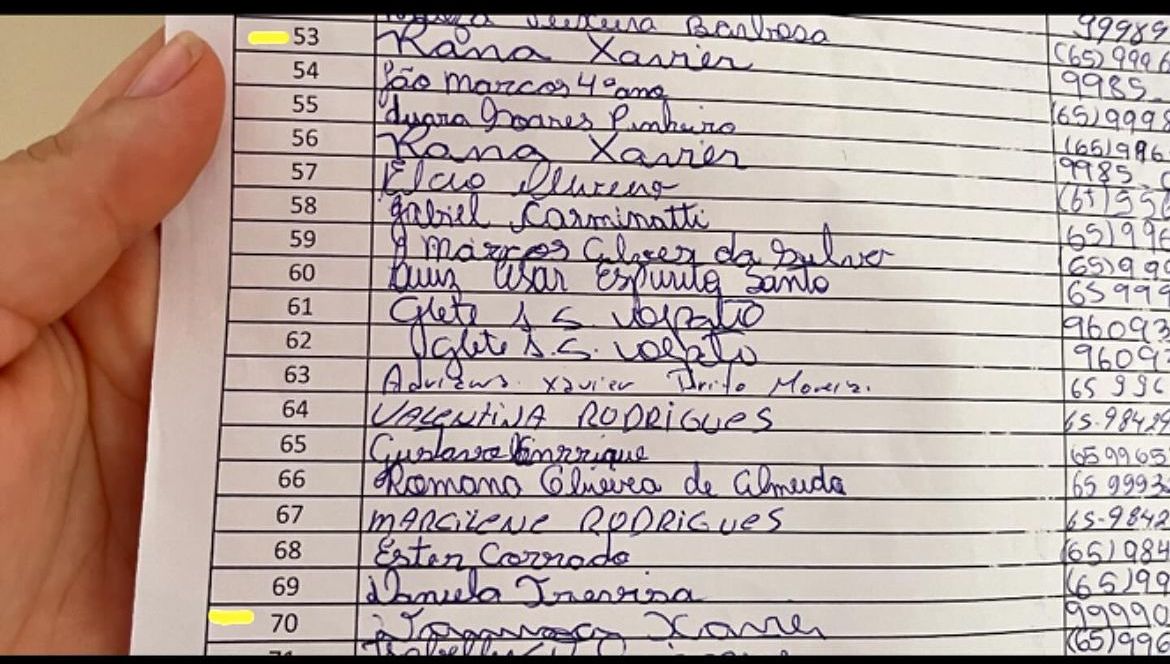 Teixeira Barbosa 99989
53 Rana Xavier (65) 9996
54 João Marcos 4º ano 9985
55 Luara Soares Pinheiro (65) 9998
56 Rana Xavier (65) 996
57 Elcio 9985
58 Gabriel Carminatti
59 Marcos Alves da Silva 65) 996
60 Luiz Cesar Espirito Santo 65) 99
61 Glete S. S. Volpato 65 999
62 Glete S. S. Volpato 96093
63 Xavier Brito Moreira 65 996
64 VALENTINA RODRIGUES 65-98424
65 Gustavo Henrrique 659965
66 Romana Oliveira de Almeida 65 9993
67 MARCILENE RODRIGUES 65-9842
68 Ester Corrado (65) 984
69 Daniela (65) 99
70 Xavier 99990
(65) 996